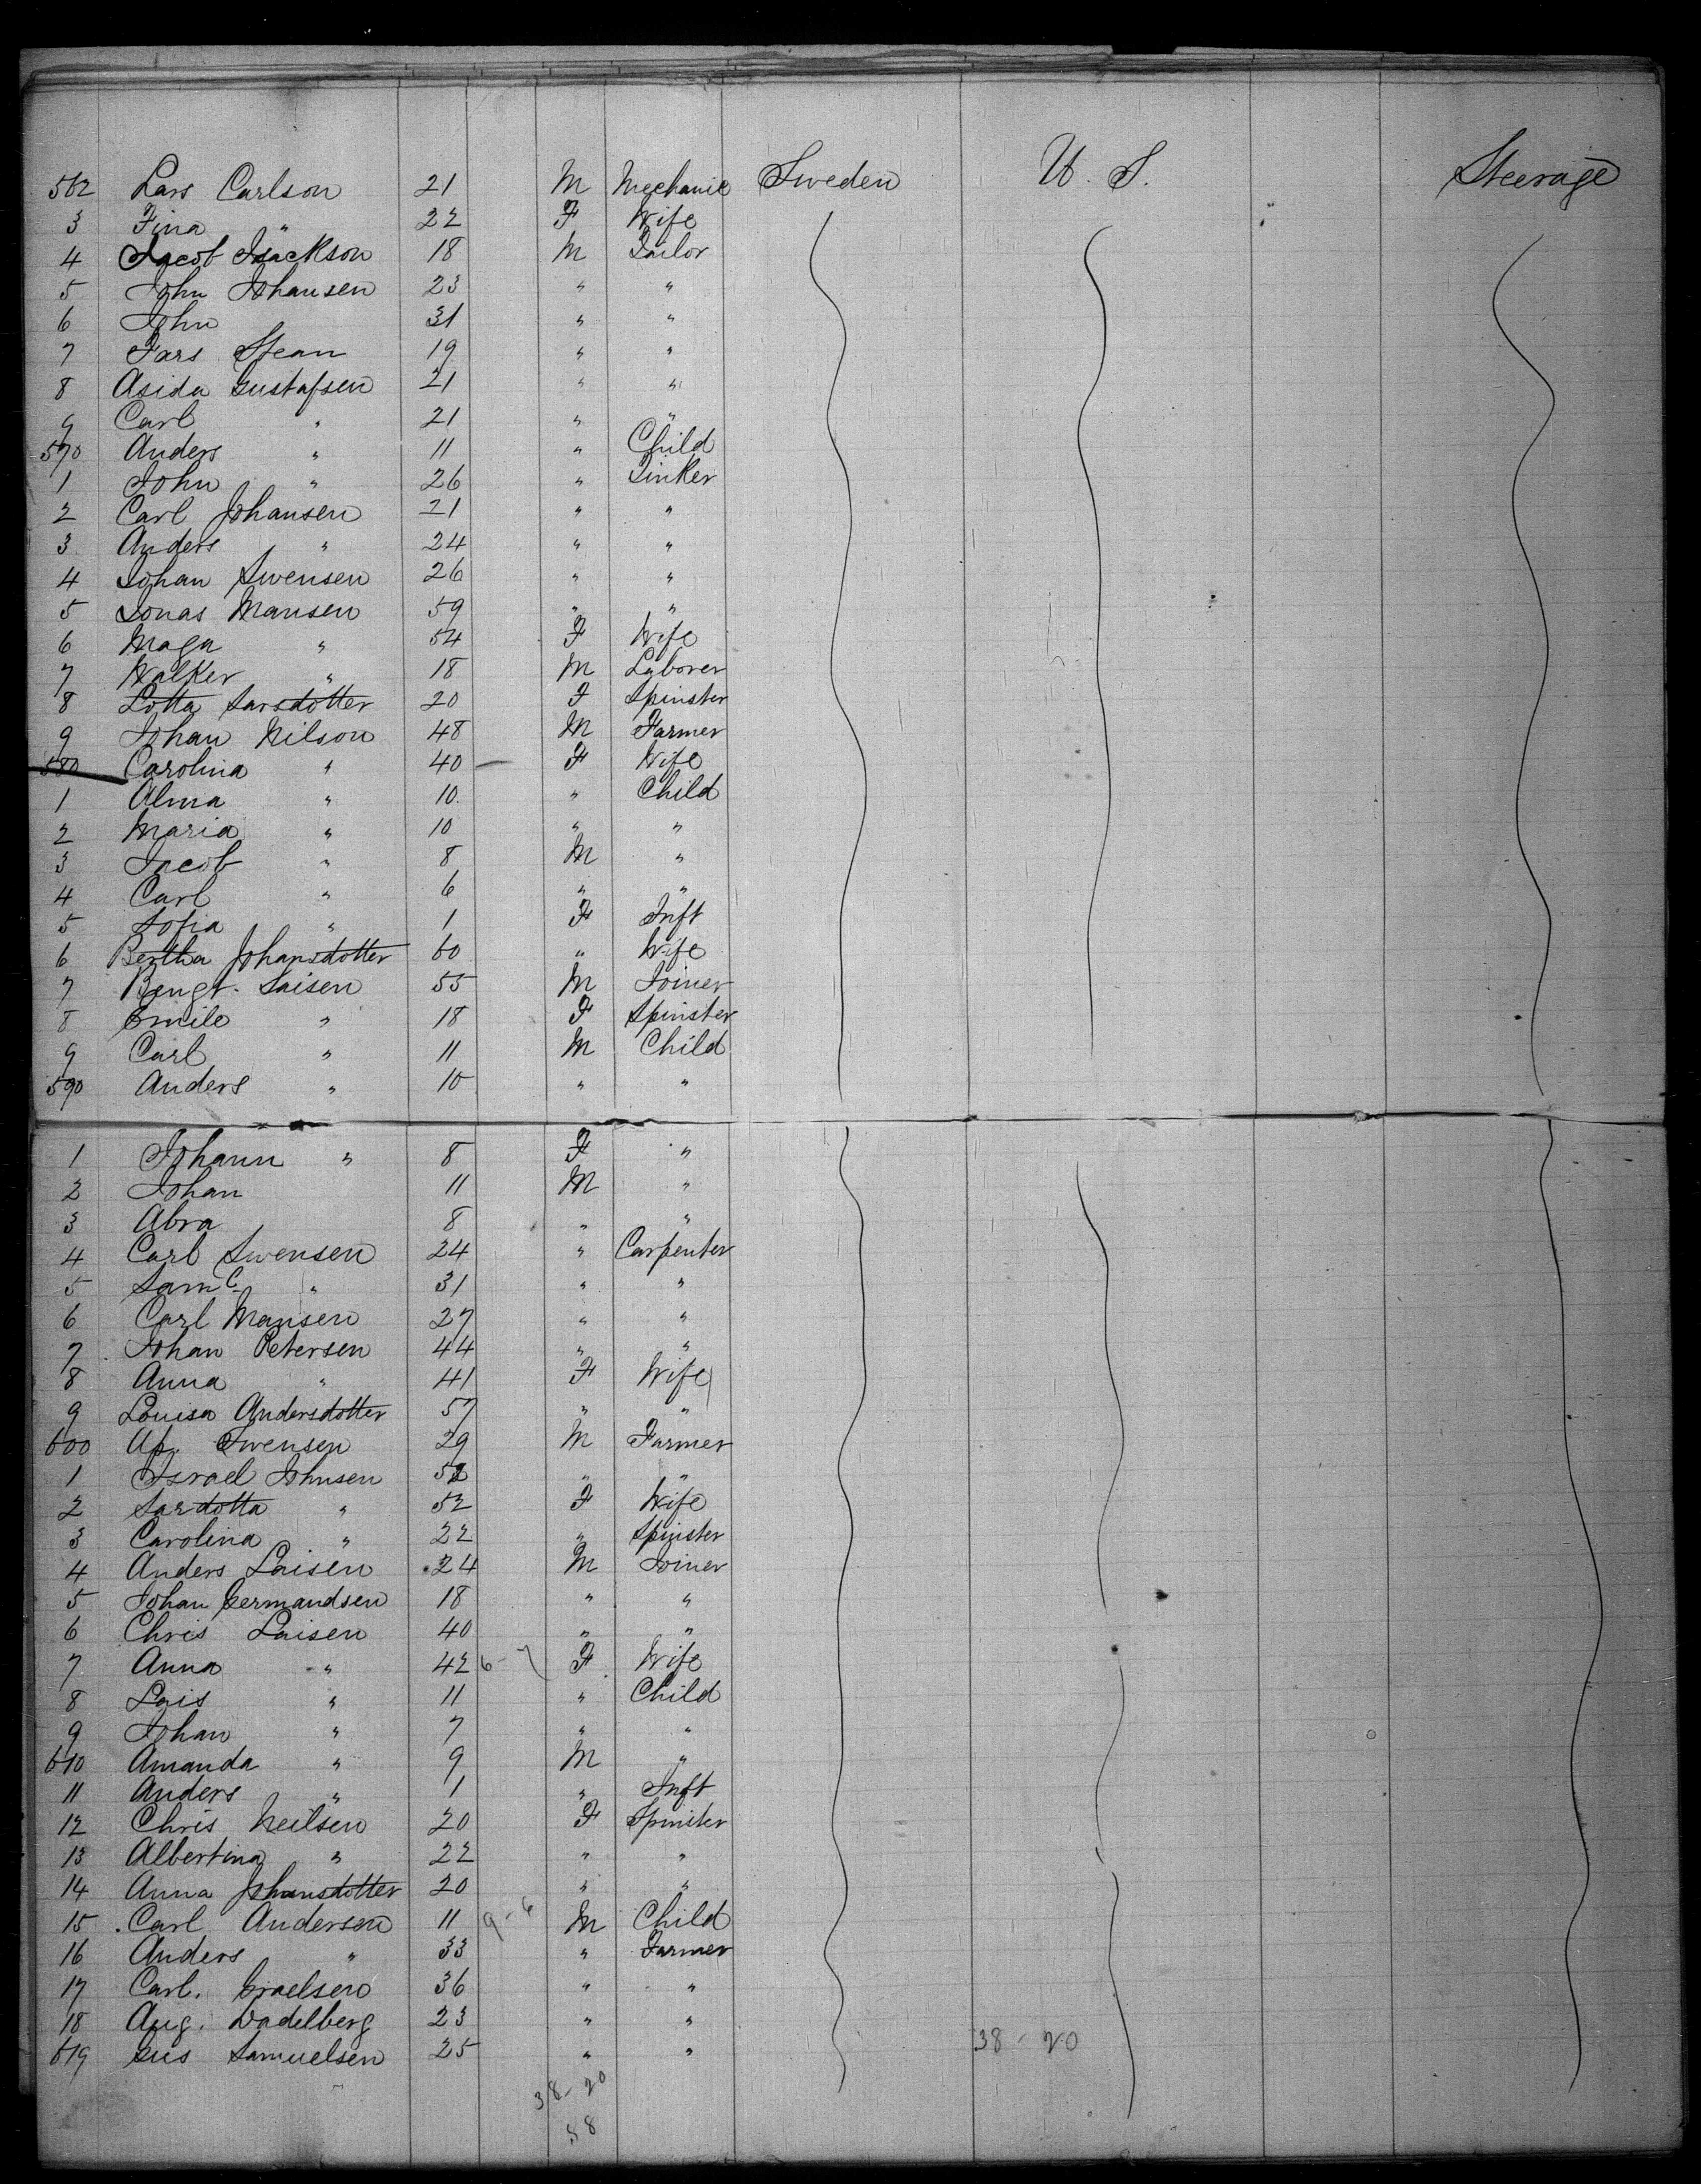 562 Lars Carlson 21 M Mechanic Sweden U. S. Steerage
3 Fina " 22 F Wife
4 Jacob Isackson 18 M Tailor
5 John Johansen 23 " "
6 John 31 " "
7 Lars Stean 19 " "
8 Asida Gustafsen 21 " "
9 Carl " 21 " "
570 Anders " 11 " Child
1 John " 26 " Tinker
2 Carl Johansen 21 " "
3 Anders " 24 " "
4 Johan Swensen 26 " "
5 Jonas Mansen 59 " "
6 Maga " 54 F Wife
7 Walker " 18 M Laborer
8 Lotta Larsdotter 20 F Spinster
9 Johan Nilson 48 M Farmer
580 Carolina " 40 F Wife
1 Alma " 10 " Child
2 Maria " 10 " "
3 Jacob " 8 M "
4 Carl " 6 " "
5 Sofia " 1 F Inft
6 Bertha Johansdotter 60 " Wife
7 Bengt. Laisen 55 M Joiner
8 Emile " 18 F Spinster
9 Carl " 11 M Child
590 Anders " 10 " "
1 Johann " 8 F "
2 Johan 11 M "
3 Abra 8 " "
4 Carl Swensen 24 " Carpenter
5 Sam C. " 31 " "
6 Carl Mansen 27 " "
7 Johan Petersen 44 " "
8 Anna " 41 F Wife
9 Louisa Andersdotter 57 " "
600 Ap. Swensen 29 M Farmer
1 Israel Johnsen 52 " "
2 Sardotta " 52 F Wife
3 Carolina " 22 " Spinster
4 Anders Laisen 24 M Joiner
5 Johan Germandsen 18 " "
6 Chris Laisen 40 " "
7 Anna " 42 F Wife
8 Lais " 11 " Child
9 Johan " 7 " "
610 Amanda " 9 M "
11 Anders " 1 " Inft
12 Chris Neilsen 20 F Spinster
13 Albertina " 22 " "
14 Anna Johansdotter 20 " "
15 Carl Andersen 11 9-6 M Child
16 Anders " 33 " Farmer
17 Carl. Graelsen 36 " "
18 Aug. Dadelberg 23 " "
619 Gus Samuelsen 25 " " 38-20
38-20
58